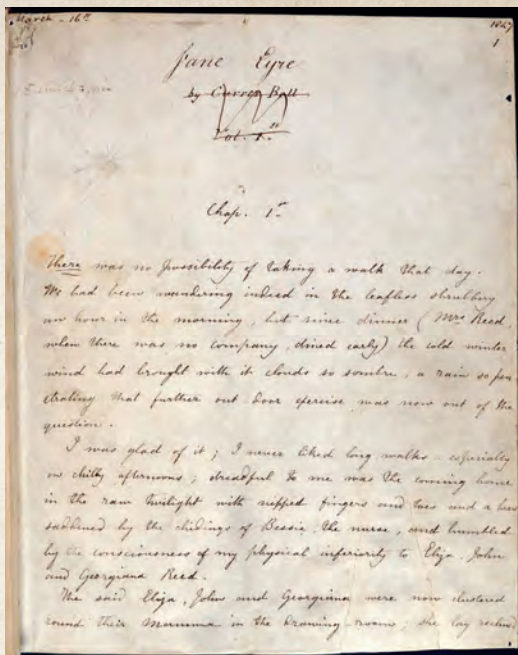 March - 16th
1847
1
Jane Eyre
by Currer Bell
Vol. 1st
Chap. 1st
There was no possibility of taking a walk that day.
We had been wandering indeed in the leafless shrubbery
an hour in the morning, but since dinner (Mrs Reed,
when there was no company, dined early) the cold winter
wind had brought with it clouds so sombre, a rain so pene
trating that further out door exercise was now out of the
question.
I was glad of it; I never liked long walks - especially
on chilly afternoons; dreadful to me was the coming home
in the raw twilight with nipped fingers and toes and a
saddened by the chidings of Bessie, the nurse, and humbled
by the consciousness of my physical inferiority to Eliza, John
and Georgiana Reed.
The said Eliza, John and Georgiana were now clustered
round their Mamma in the drawing-room; she lay